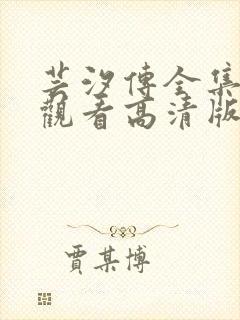 芸汐傳全集
觀看高清版
賈某博